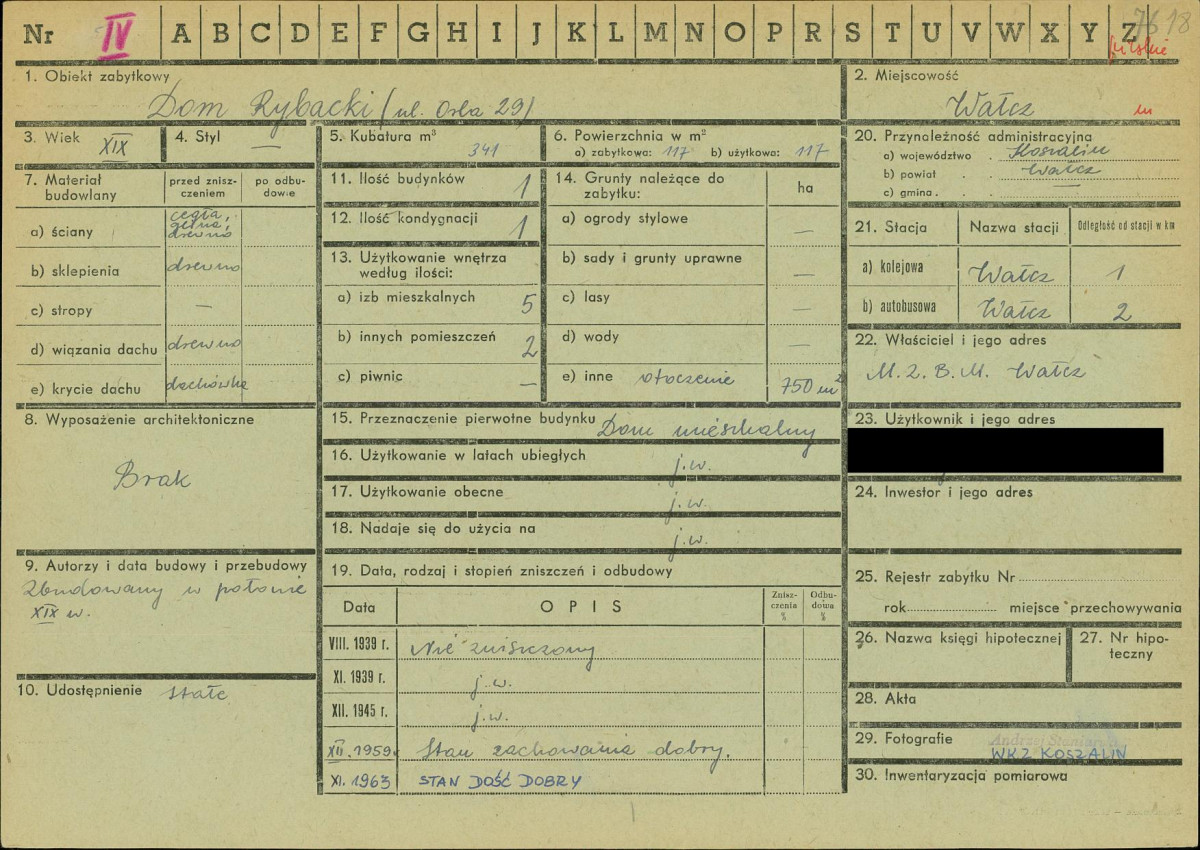 Nr IV A B C D E F G H I J K L M N O P R S T U V W X Y Z 76 18
pilskie
1. Obiekt zabytkowy
Dom Rybacki (ul. Orla 29)
2. Miejscowość
Wałcz
m
3. Wiek XIX
4. Styl —
5. Kubatura m³
341
6. Powierzchnia w m²
a) zabytkowa: 117 b) użytkowa: 117
20. Przynależność administracyjna
a) województwo . Koszalin
b) powiat . . Wałcz
c) gmina . . —
7. Materiał budowlany
przed zniszczeniem
po odbudowie
a) ściany cegła, glina, drewno
b) sklepienia drewno
c) stropy —
d) wiązania dachu drewno
e) krycie dachu dachówka
11. Ilość budynków 1
12. Ilość kondygnacji 1
13. Użytkowanie wnętrza
według ilości:
a) izb mieszkalnych 5
b) innych pomieszczeń 2
c) piwnic —
14. Grunty należące do
zabytku: ha
a) ogrody stylowe —
b) sady i grunty uprawne —
c) lasy —
d) wody —
e) inne otoczenie 750 m²
21. Stacja Nazwa stacji Odległość od stacji w km
a) kolejowa Wałcz 1
b) autobusowa Wałcz 2
22. Właściciel i jego adres
M.Z.B.M. Wałcz
8. Wyposażenie architektoniczne
Brak
15. Przeznaczenie pierwotne budynku Dom mieszkalny
16. Użytkowanie w latach ubiegłych j.w.
17. Użytkowanie obecne j.w.
18. Nadaje się do użycia na j.w.
23. Użytkownik i jego adres
24. Inwestor i jego adres
9. Autorzy i data budowy i przebudowy
Zbudowany w połowie
XIX w.
10. Udostępnienie stałe
19. Data, rodzaj i stopień zniszczeń i odbudowy
Data OPIS Zniszczenia % Odbudowa %
VIII. 1939 r. Nie zniszczony
XI. 1939 r. j.w.
XII. 1945 r. j.w.
XII. 1959. Stan zachowania dobry.
XI. 1963 STAN DOŚĆ DOBRY
25. Rejestr zabytku Nr
rok miejsce przechowywania
26. Nazwa księgi hipotecznej
27. Nr hipoteczny
28. Akta
29. Fotografie
WKZ KOSZALIN
30. Inwentaryzacja pomiarowa